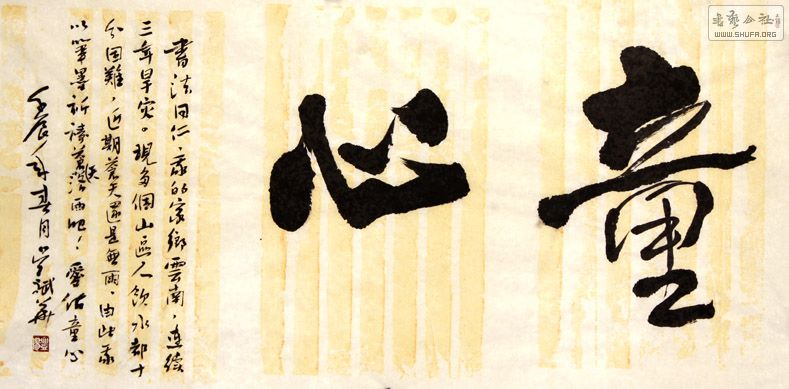 書藝公社
WWW.SHUFA.ORG
童心
書法同仁，我的家鄉雲南，連續
三年旱灾。現多個山區人飲水都十
分困難，近期蒼天還是無雨，由此我
以筆墨祈禱蒼天落雨吧！愛佑童心
壬辰年春月